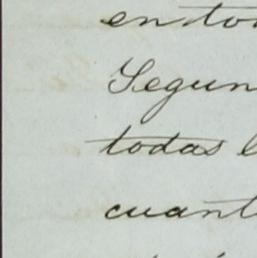 en to
Segun
todas l
cuant